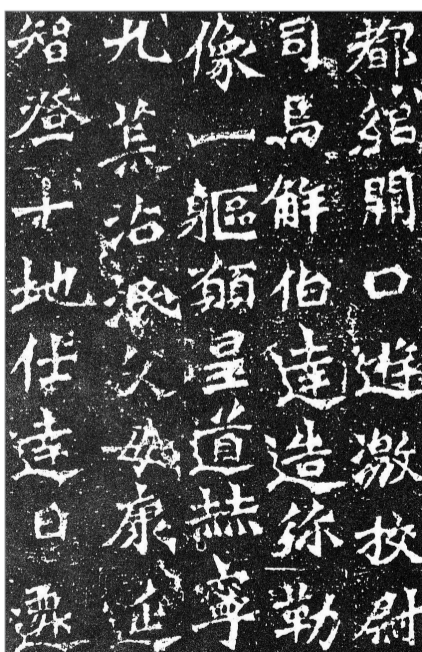 都綰關口遊激校尉
司馬解伯達造弥勒
像一軀願皇道赫寧
九荒沾泯父母康延
智登十地仕達日遷